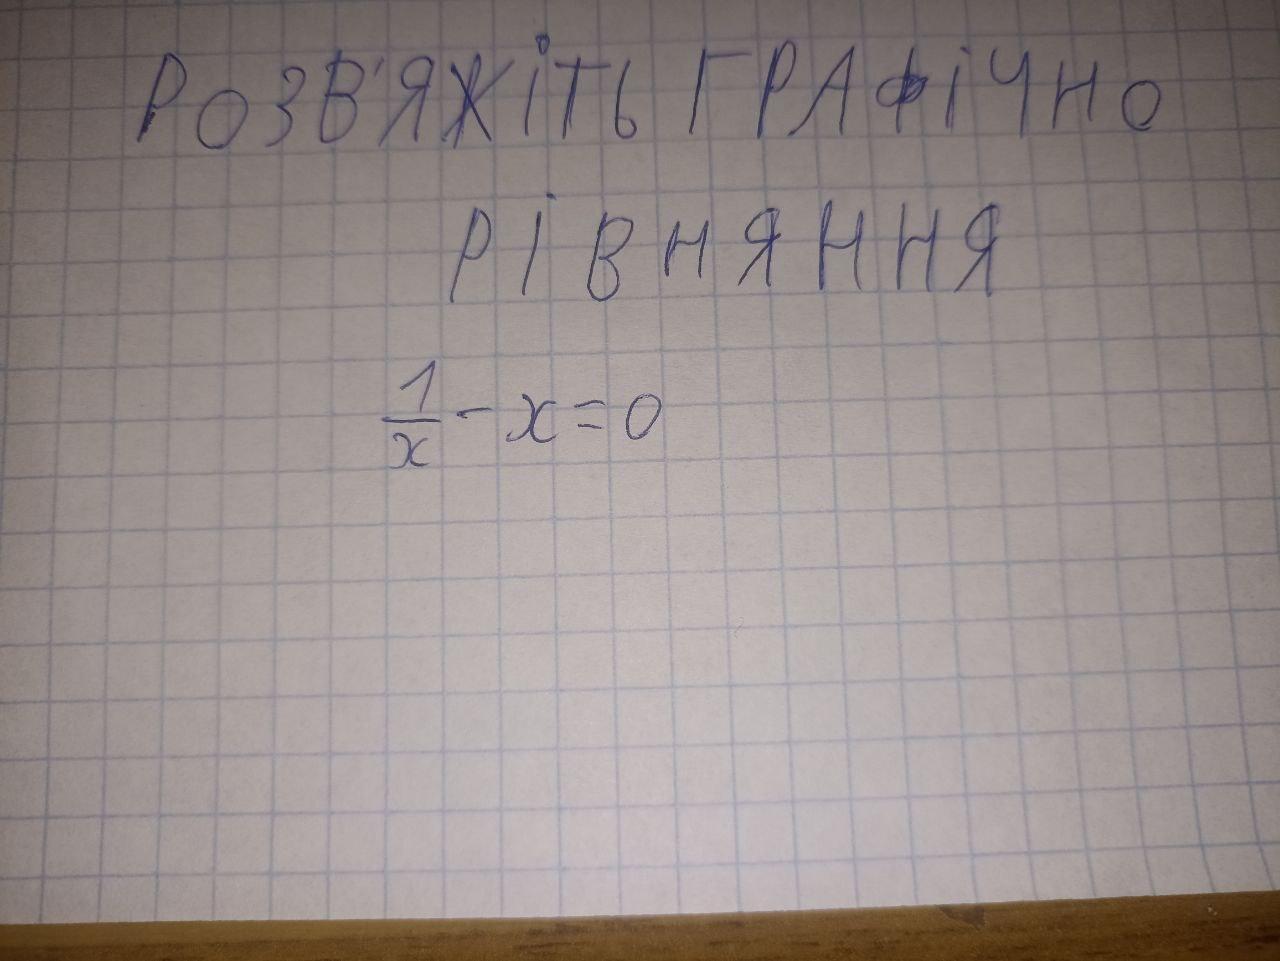 РОЗВ'ЯЖІТЬ ГРАФІЧНО
РІВНЯННЯ
1/x - x = 0